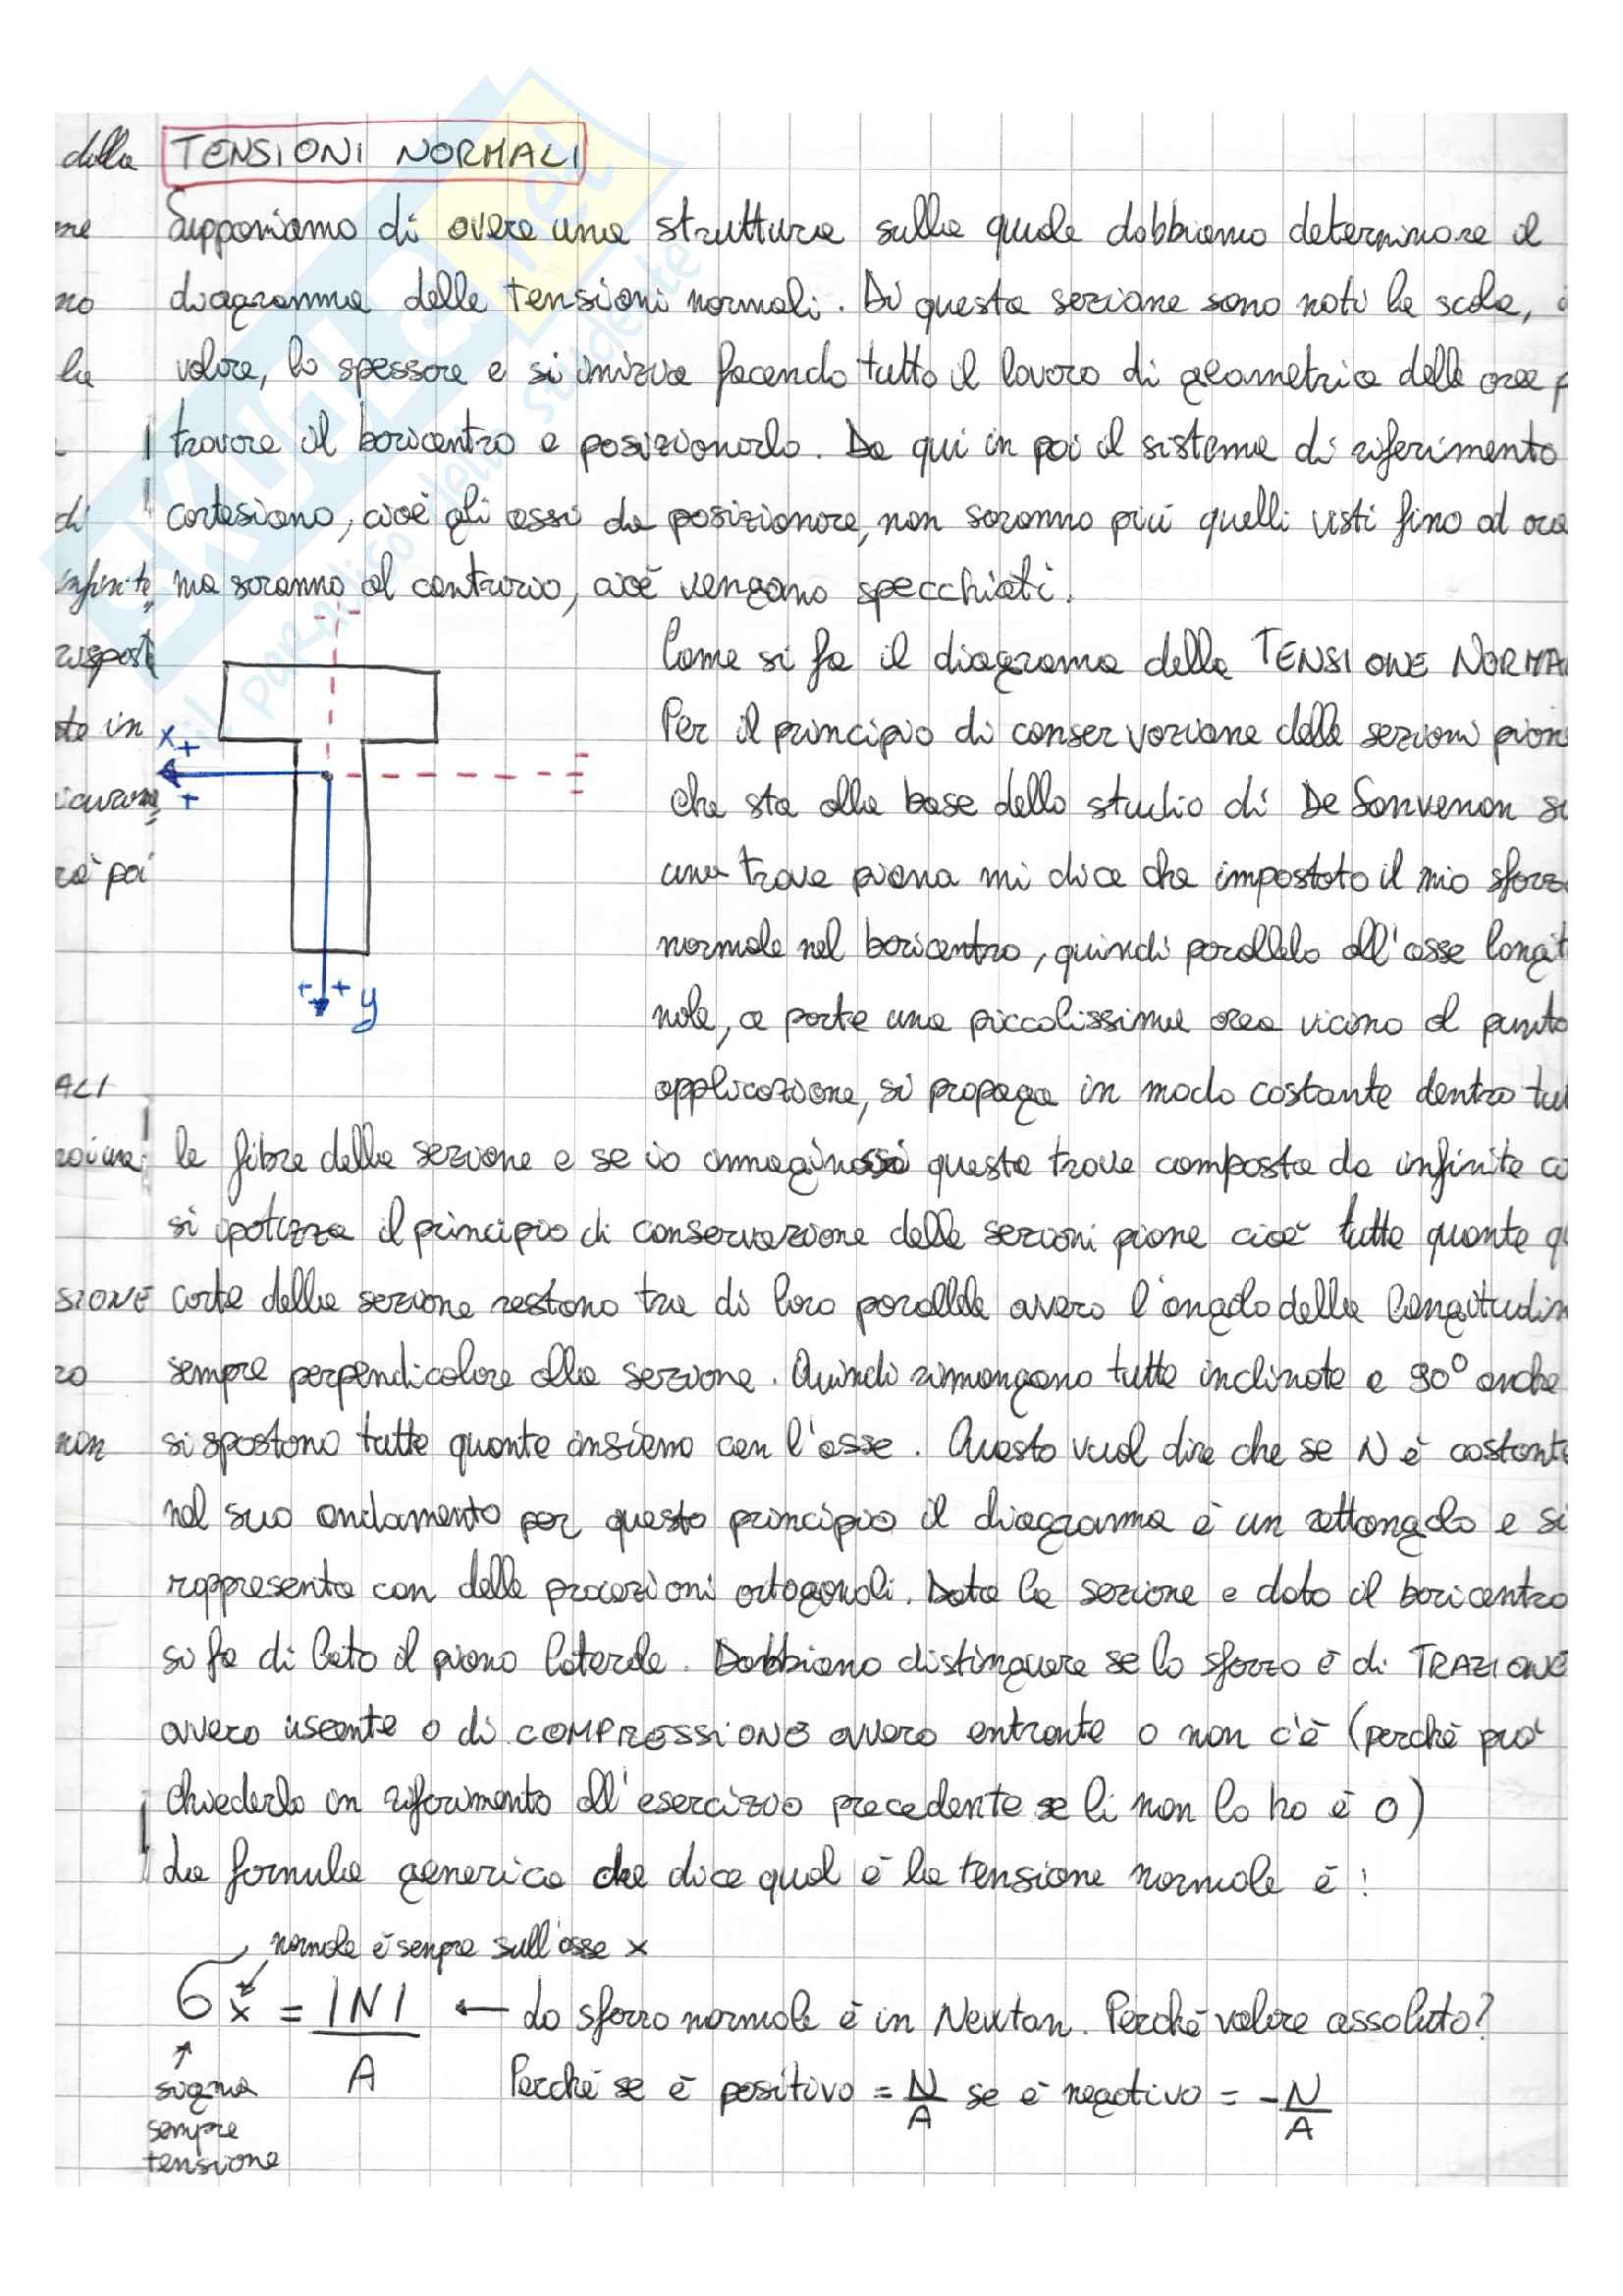 della TENSIONI NORMALI
Supponiamo di avere una struttura sulla quale dobbiamo determinare il
no diagramma delle tensioni normali. Di questa sezione sono noti la scala,
la valore, lo spessore e si inizia facendo tutto il lavoro di geometria delle aree p
trovare il baricentro e posizionarlo. Da qui in poi il sistema di riferimento
di cartesiano, cioè gli assi da posizionare, non saranno più quelli visti fino ad ora
infinite ma saranno al contrario, cioè vengono specchiati.
Come si fa il diagrama della TENSIONE NORMA
te in x + Per il principio di conservazione delle sezioni pian
+ Che sta alla base dello studio di De Sanvenan su
rà poi una trave piana mi dice che impostato il mio sforz
normale nel baricentro, quindi parallelo all'asse longit
+ + y nale, a parte una piccolissima area vicino al punto
ALI applicazione, si propaga in modo costante dentro tut
le fibre della sezione e se io immaginassi questa trave composta da infinite ca
si ipotizza il principio di conservazione delle sezioni piane cioè tutte quante q
SIONE carte della sezione restano tra di loro parallele ovvero l'angolo della longitudin
ro sempre perpendicolare alla sezione. Quindi rimangano tutte inclinate a 90° anche
non si spostano tutte quante insieme con l'asse. Questo vuol dire che se N è costante
nel suo andamento per questo principio il diagramma è un rettangolo e si
rappresenta con delle proiezioni ortogonali. Data la sezione e dato il baricentro
si fa di lato il piano laterale. Dobbiamo distinguere se lo sforzo è di TRAZIONE
ovvero uscente o di COMPRESSIONE ovvero entrante o non c'è (perchè può
chiederlo in riferimento all'esercizio precedente se li non lo ho è 0)
La formula generica che dice qual è la tensione normale è:
normale è sempre sull'asse x
σx = |N| / A ← Lo sforzo normale è in Newton. Perchè valore assoluto?
Perchè se è positivo = N/A se è negativo = -N/A
sigma
sempre
tensione